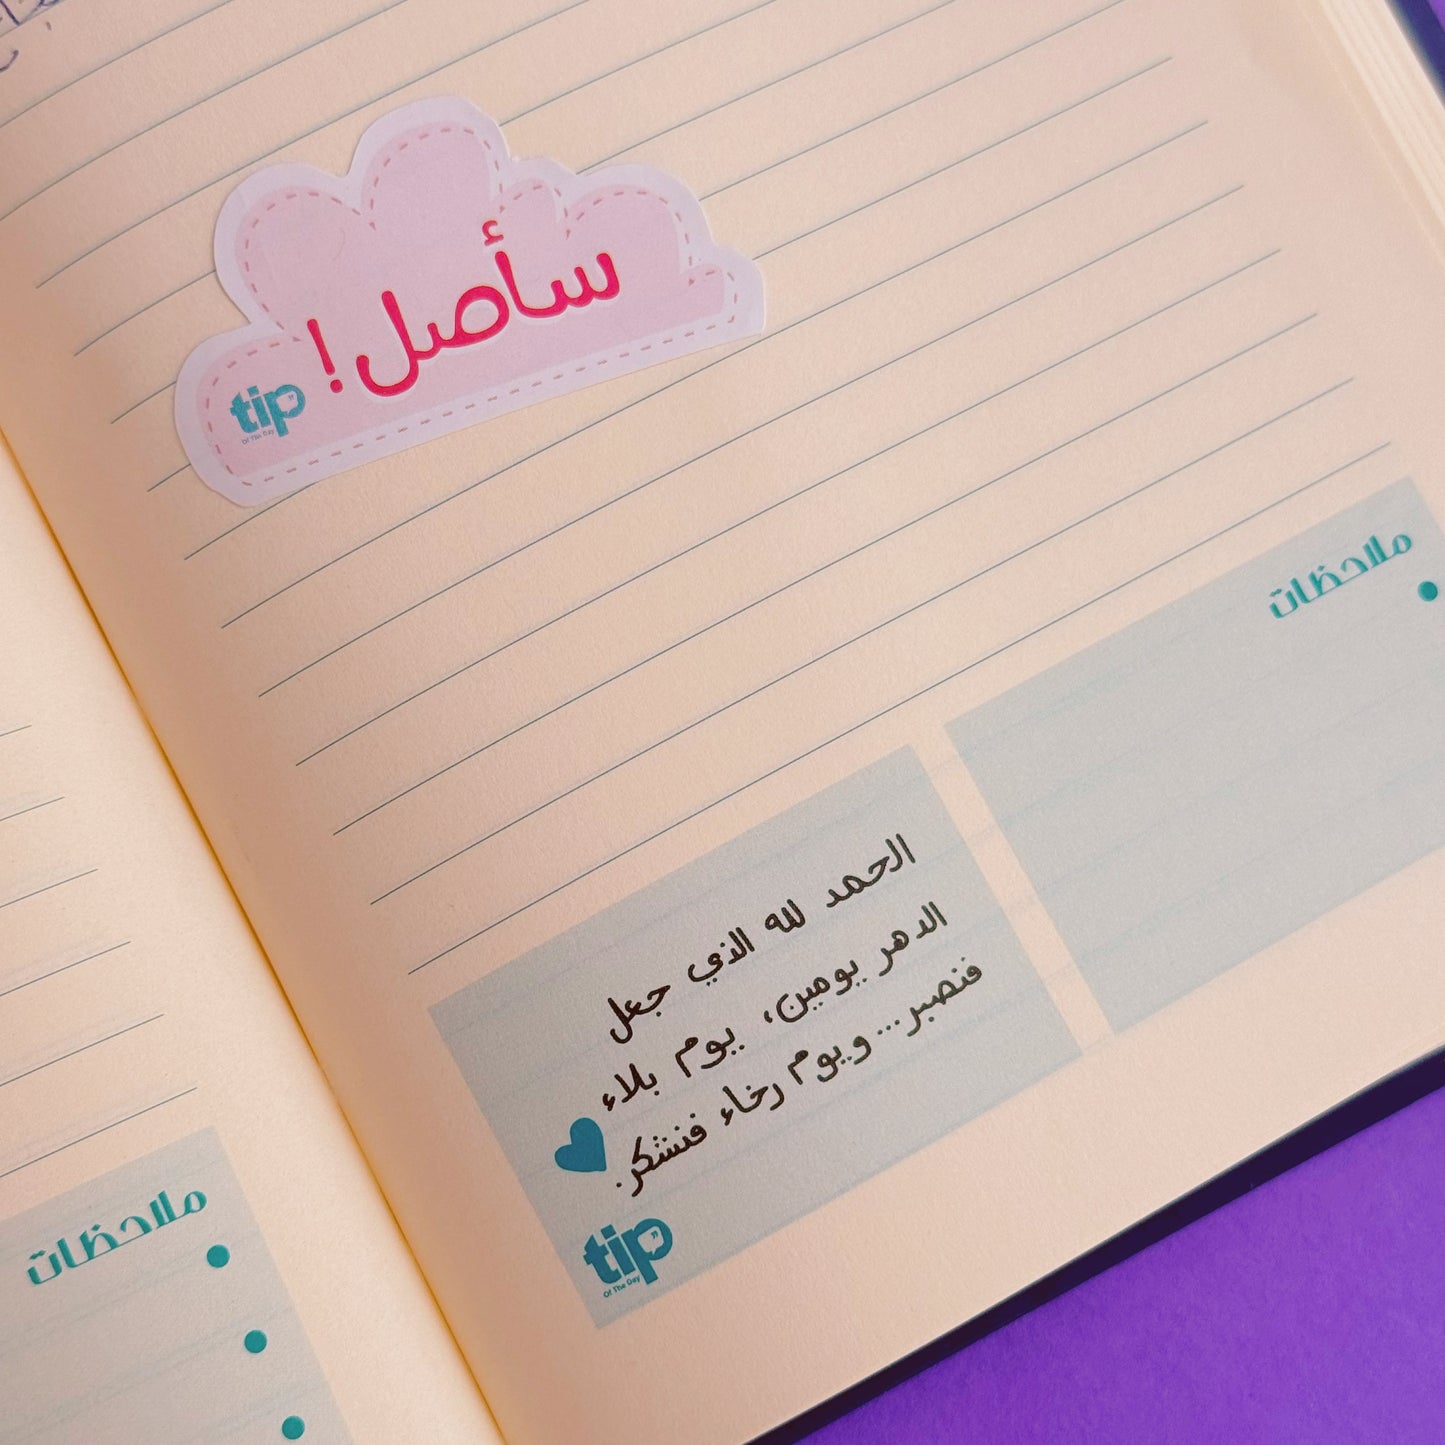 سأصل!
tip
Of The Day
ملاحظات
الحمد لله الذي جعل
الدهر يومين، يوم بلاء
فنصبر... ويوم رخاء فنشكر.
tip
Of The Day
ملاحظات